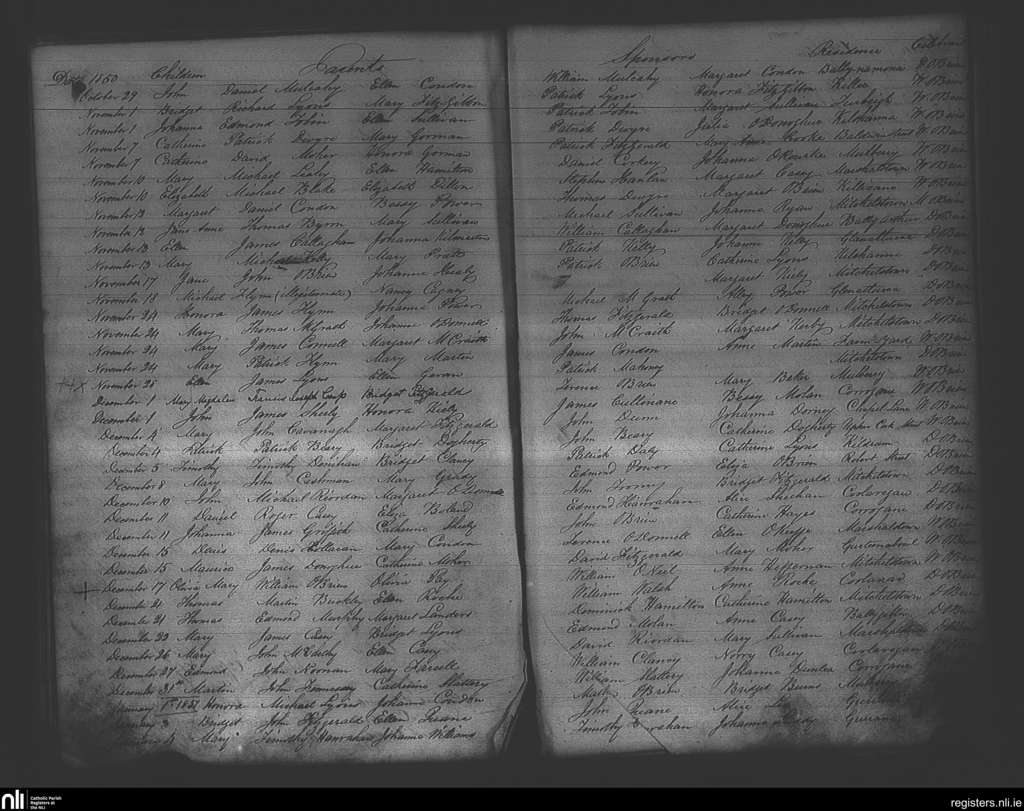 Date 1850 Children Parents Sponsors Residence
October 29 John Daniel Mulcahy Ellen Condon William Mulcahy Margaret Condon Ballynamona D OBrien
November 1 Bridget Richard Lyons Mary FitzGibbon Patrick Lyons Honora Fitzgibbon Killee W. OBrien
November 1 Johanna Edmond Tobin Ellen Sullivan Patrick Tobin Margaret Sullivan W. OBrien
November 7 Catherine Patrick Dwyre Mary Gorman Patrick Dwyre Julia O'Donoghue Kilshanna W. OBrien
November 7 Catherine David Moher Honora Gorman Patrick Fitzgerald Cooke Baldwin Street W OBrien
November 10 Mary Michael Leahy Ellen Hamilton Daniel Corkery Johanna ORourke Mulberry W. OBrien
November 10 Elizabeth Michael Blake Elizabeth Dillon Stephen Hanlan Margaret Casey Marshalstown W OBrien
November 13 Margaret Daniel Condon Bessy Power Thomas Dwyre Margaret OBrien Killivane W OBrien
November 13 Jane Anne Thomas Byron Mary Sullivan Michael Sullivan Johanna Ryan Mitchelstown
November 13 Ellen James Callaghan Johanna William Callaghan Margaret Donoghue D OBrien
November 13 Mary Michael Kelly Mary Pratt Patrick Kelly Johanna Kelly D OBrien
November 17 Jane John OBrien Johanna Healy Patrick OBrien Catherine Lyons Kilshanna D OBrien
November 18 Michael Flynn (illegitimate) Nancy Cagney Margaret Mitchelstown D OBrien
November 24 Honora James Flynn Johanna Power Michael McGrath Power D OBrien
November 24 Mary Thomas McGrath Johanna O'Donnell Thomas Fitzgerald Bridget O'Donnell Mitchelstown D OBrien
November 24 Mary James Connell Margaret McCraith John McCraith Margaret Mitchelstown D OBrien
November 24 Mary Patrick Flynn Mary Martin James Condon Anne Martin W OBrien
November 28 Ellen James Lyons Ellen Gavan Patrick Mahony Mitchelstown D OBrien
December 1 Mary Magdalen Francis Joseph Bridget Fitzgerald Terence OBrien Mary Baker Mulberry W. OBrien
December 1 John James Sheely Honora James Cullenane Bessy Molan Corrgane W OBrien
December 4 Mary John Cavanagh Margaret Fitzgerald John Dunn Johanna Dorney Chapel Lane W. OBrien
December 4 Patrick Patrick Beary Bridget Dogherty John Beary Catherine Dogherty Upper Cork Street W OBrien
December 5 Timothy Timothy Donehan Bridget Clancy Patrick Daly Catherine Lyons Kildrum D OBrien
December 8 Mary John Cashman Mary Grady Edmond Power Eliza OBrien Robert Street D OBrien
December 10 John Michael Riordan Margaret O'Donnell John Bridget Fitzgerald Mitchelstown D OBrien
December 11 Daniel Roger Casey Eliza Boland Edmond Hanrahan Alice Sheehan Coolarogan D OBrien
December 11 Johanna James Griffith Catherine Sheely John OBrien Catherine Hayes Corrogane D OBrien
December 15 Denis Denis Mary Condon Terence O'Donnell Ellen OKeefe Marshalstown W OBrien
December 15 Maurice James Donoghue Catherine Moher David Fitzgerald Mary Moher W OBrien
December 17 Olivia Mary William OBrien Olivia Ray William O'Neil Anne Heffernan Mitchelstown W OBrien
December 21 Thomas Martin Buckley Ellen Roche William Walsh Anne Roche D OBrien
December 21 Thomas Edmond Murphy Margaret Landers Dominick Hamilton Catherine Hamilton Mitchelstown D OBrien
December 22 Mary James Casey Bridget Lyons Edmond Molan Anne Casey D OBrien
December 26 Mary John Ellen Casey David Riordan Mary Sullivan Marshalstown
December 27 Edmond John Noonan Mary Farrell William Clancy Norry Casey Coolarogan
December 31st Martin John Hennessy Catherine Slattery William Slattery Johanna Corrogane
January 1st 1851 Honora Michael Lyons Johanna Condon OBrien Bridget
January 3 Bridget John Fitzgerald Ellen John Alice
Mary Timothy Hanrahan Johanna Williams Timothy Hanrahan Johanna
nli Catholic Parish Registers at the NLI
registers.nli.ie